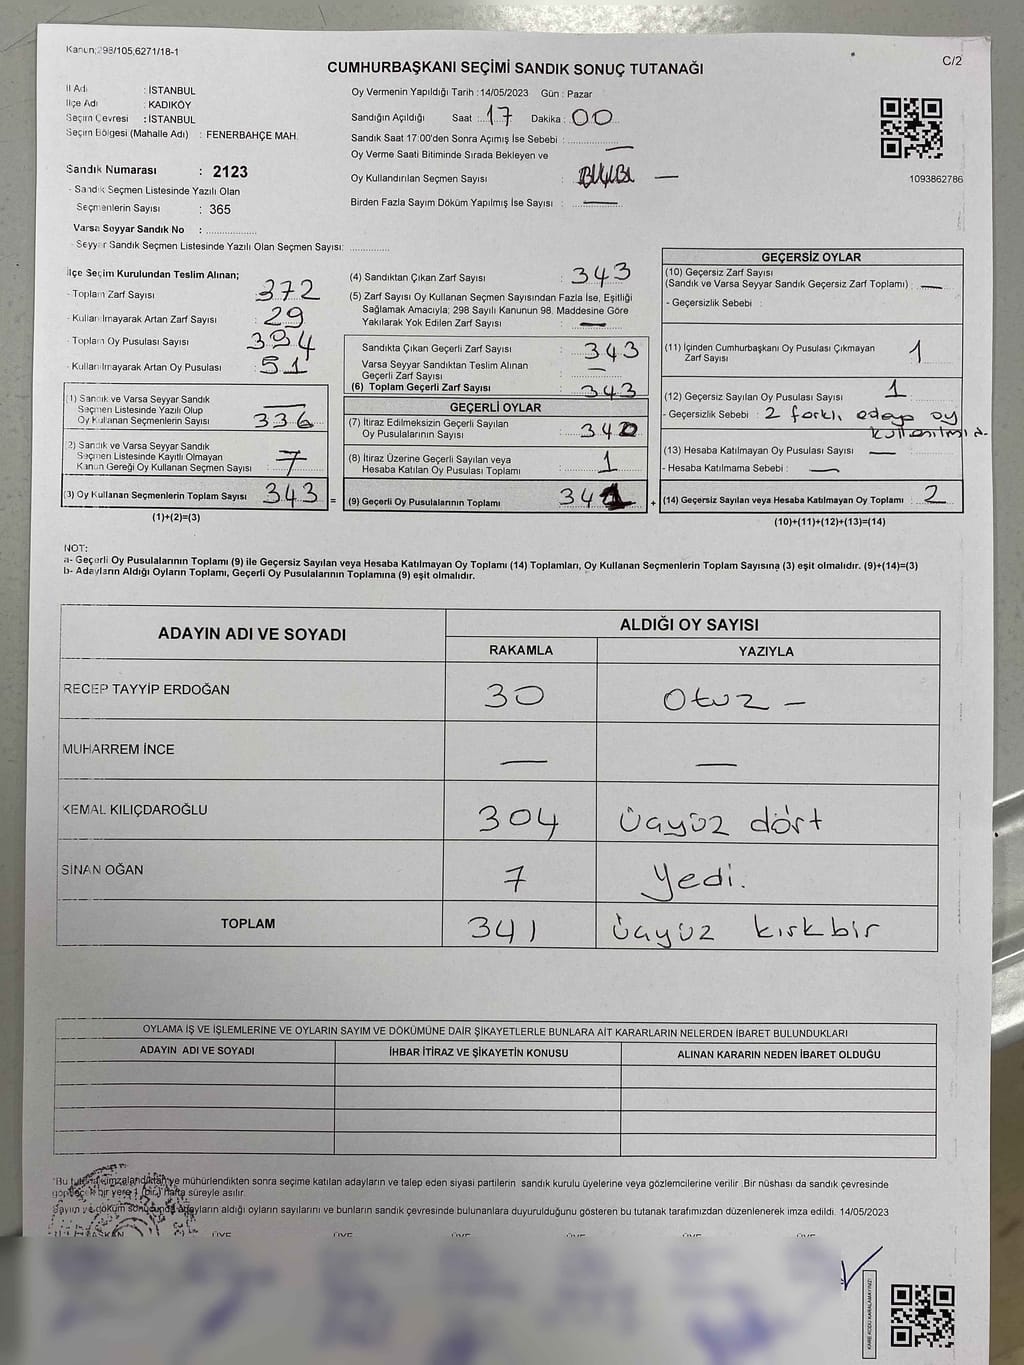 Kanun;298/105,6271/18-1
C/2
CUMHURBAŞKANI SEÇİMİ SANDIK SONUÇ TUTANAĞI
İl Adı : İSTANBUL
İlçe Adı : KADIKÖY
Seçim Çevresi : İSTANBUL
Seçim Bölgesi (Mahalle Adı) : FENERBAHÇE MAH.
Sandık Numarası : 2123
- Sandık Seçmen Listesinde Yazılı Olan
Seçmenlerin Sayısı : 365
Varsa Seyyar Sandık No :
- Seyyar Sandık Seçmen Listesinde Yazılı Olan Seçmen Sayısı:
Oy Vermenin Yapıldığı Tarih :14/05/2023 Gün : Pazar
Sandığın Açıldığı Saat : 17 Dakika : 00
Sandık Saat 17:00'den Sonra Açımış İse Sebebi : —
Oy Verme Saati Bitiminde Sırada Bekleyen ve
Oy Kullandırılan Seçmen Sayısı : —
Birden Fazla Sayım Döküm Yapılmış İse Sayısı : —
1093862786
İlçe Seçim Kurulundan Teslim Alınan;
- Toplam Zarf Sayısı : 372
- Kullanılmayarak Artan Zarf Sayısı : 29
- Toplam Oy Pusulası Sayısı : 394
- Kullanılmayarak Artan Oy Pusulası : 51
(1) Sandık ve Varsa Seyyar Sandık
Seçmen Listesinde Yazılı Olup
Oy Kullanan Seçmenlerin Sayısı : 336
(2) Sandık ve Varsa Seyyar Sandık
Seçmen Listesinde Kayıtlı Olmayan
Kanun Gereği Oy Kullanan Seçmen Sayısı : 7
(3) Oy Kullanan Seçmenlerin Toplam Sayısı : 343
(1)+(2)=(3)
=
(4) Sandıktan Çıkan Zarf Sayısı : 343
(5) Zarf Sayısı Oy Kullanan Seçmen Sayısından Fazla İse, Eşitliği
Sağlamak Amacıyla; 298 Sayılı Kanunun 98. Maddesine Göre
Yakılarak Yok Edilen Zarf Sayısı : —
Sandıkta Çıkan Geçerli Zarf Sayısı : 343
Varsa Seyyar Sandıktan Teslim Alınan
Geçerli Zarf Sayısı : —
(6) Toplam Geçerli Zarf Sayısı : 343
GEÇERLİ OYLAR
(7) İtiraz Edilmeksizin Geçerli Sayılan
Oy Pusulalarının Sayısı : 340
(8) İtiraz Üzerine Geçerli Sayılan veya
Hesaba Katılan Oy Pusulası Toplamı : 1
(9) Geçerli Oy Pusulalarının Toplamı : 341
+
GEÇERSİZ OYLAR
(10) Geçersiz Zarf Sayısı
(Sandık ve Varsa Seyyar Sandık Geçersiz Zarf Toplamı) : —
- Geçersizlik Sebebi :
(11) İçinden Cumhurbaşkanı Oy Pusulası Çıkmayan
Zarf Sayısı : 1
(12) Geçersiz Sayılan Oy Pusulası Sayısı : 1
- Geçersizlik Sebebi : 2 farklı adaya oy
kullanılmış.
(13) Hesaba Katılmayan Oy Pusulası Sayısı : —
- Hesaba Katılmama Sebebi : —
(14) Geçersiz Sayılan veya Hesaba Katılmayan Oy Toplamı : 2
(10)+(11)+(12)+(13)=(14)
NOT:
a- Geçerli Oy Pusulalarının Toplamı (9) ile Geçersiz Sayılan veya Hesaba Katılmayan Oy Toplamı (14) Toplamları, Oy Kullanan Seçmenlerin Toplam Sayısına (3) eşit olmalıdır. (9)+(14)=(3)
b- Adayların Aldığı Oyların Toplamı, Geçerli Oy Pusulalarının Toplamına (9) eşit olmalıdır.
ADAYIN ADI VE SOYADI
ALDIĞI OY SAYISI
RAKAMLA YAZIYLA
RECEP TAYYİP ERDOĞAN 30 Otuz -
MUHARREM İNCE — —
KEMAL KILIÇDAROĞLU 304 Üçyüz dört
SİNAN OĞAN 7 Yedi.
TOPLAM 341 Üçyüz kırkbir
OYLAMA İŞ VE İŞLEMLERİNE VE OYLARIN SAYIM VE DÖKÜMÜNE DAİR ŞİKAYETLERLE BUNLARA AİT KARARLARIN NELERDEN İBARET BULUNDUKLARI
ADAYIN ADI VE SOYADI İHBAR İTİRAZ VE ŞİKAYETİN KONUSU ALINAN KARARIN NEDEN İBARET OLDUĞU
"Bu tutanak imzalandıktan ve mühürlendikten sonra seçime katılan adayların ve talep eden siyasi partilerin sandık kurulu üyelerine veya gözlemcilerine verilir .Bir nüshası da sandık çevresinde
görülecek bir yere 1 (bir) hafta süreyle asılır.
Sayım ve döküm sonucunda adayların aldığı oyların sayılarını ve bunların sandık çevresinde bulunanlara duyurulduğunu gösteren bu tutanak tarafımızdan düzenlenerek imza edildi. 14/05/2023
BAŞKAN ÜYE ÜYE ÜYE ÜYE ÜYE
KARE KODU KARALAMAYINIZ!